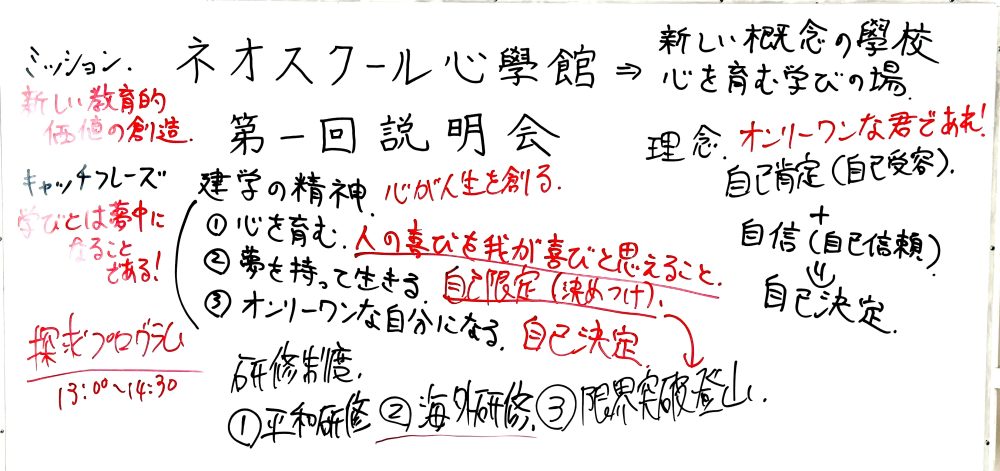 ミッション.
新しい教育的
価値の創造.
キャッチフレーズ
学びとは夢中に
なること
である!
探求プログラム
13:00〜14:30
ネオスクール心學館 ⇒
新しい概念の學校
心を育む学びの場.
第一回説明会
建学の精神. 心が人生を創る.
① 心を育む. 人の喜びを我が喜びと思えること.
② 夢を持って生きる. 自己限定(決めつけ).
③ オンリーワンな自分になる. 自己決定.
理念. オンリーワンな君であれ!
自己肯定(自己受容).
+
自信(自己信頼)
⇓
自己決定.
研修制度.
①平和研修 ②海外研修. ③限界突破登山.